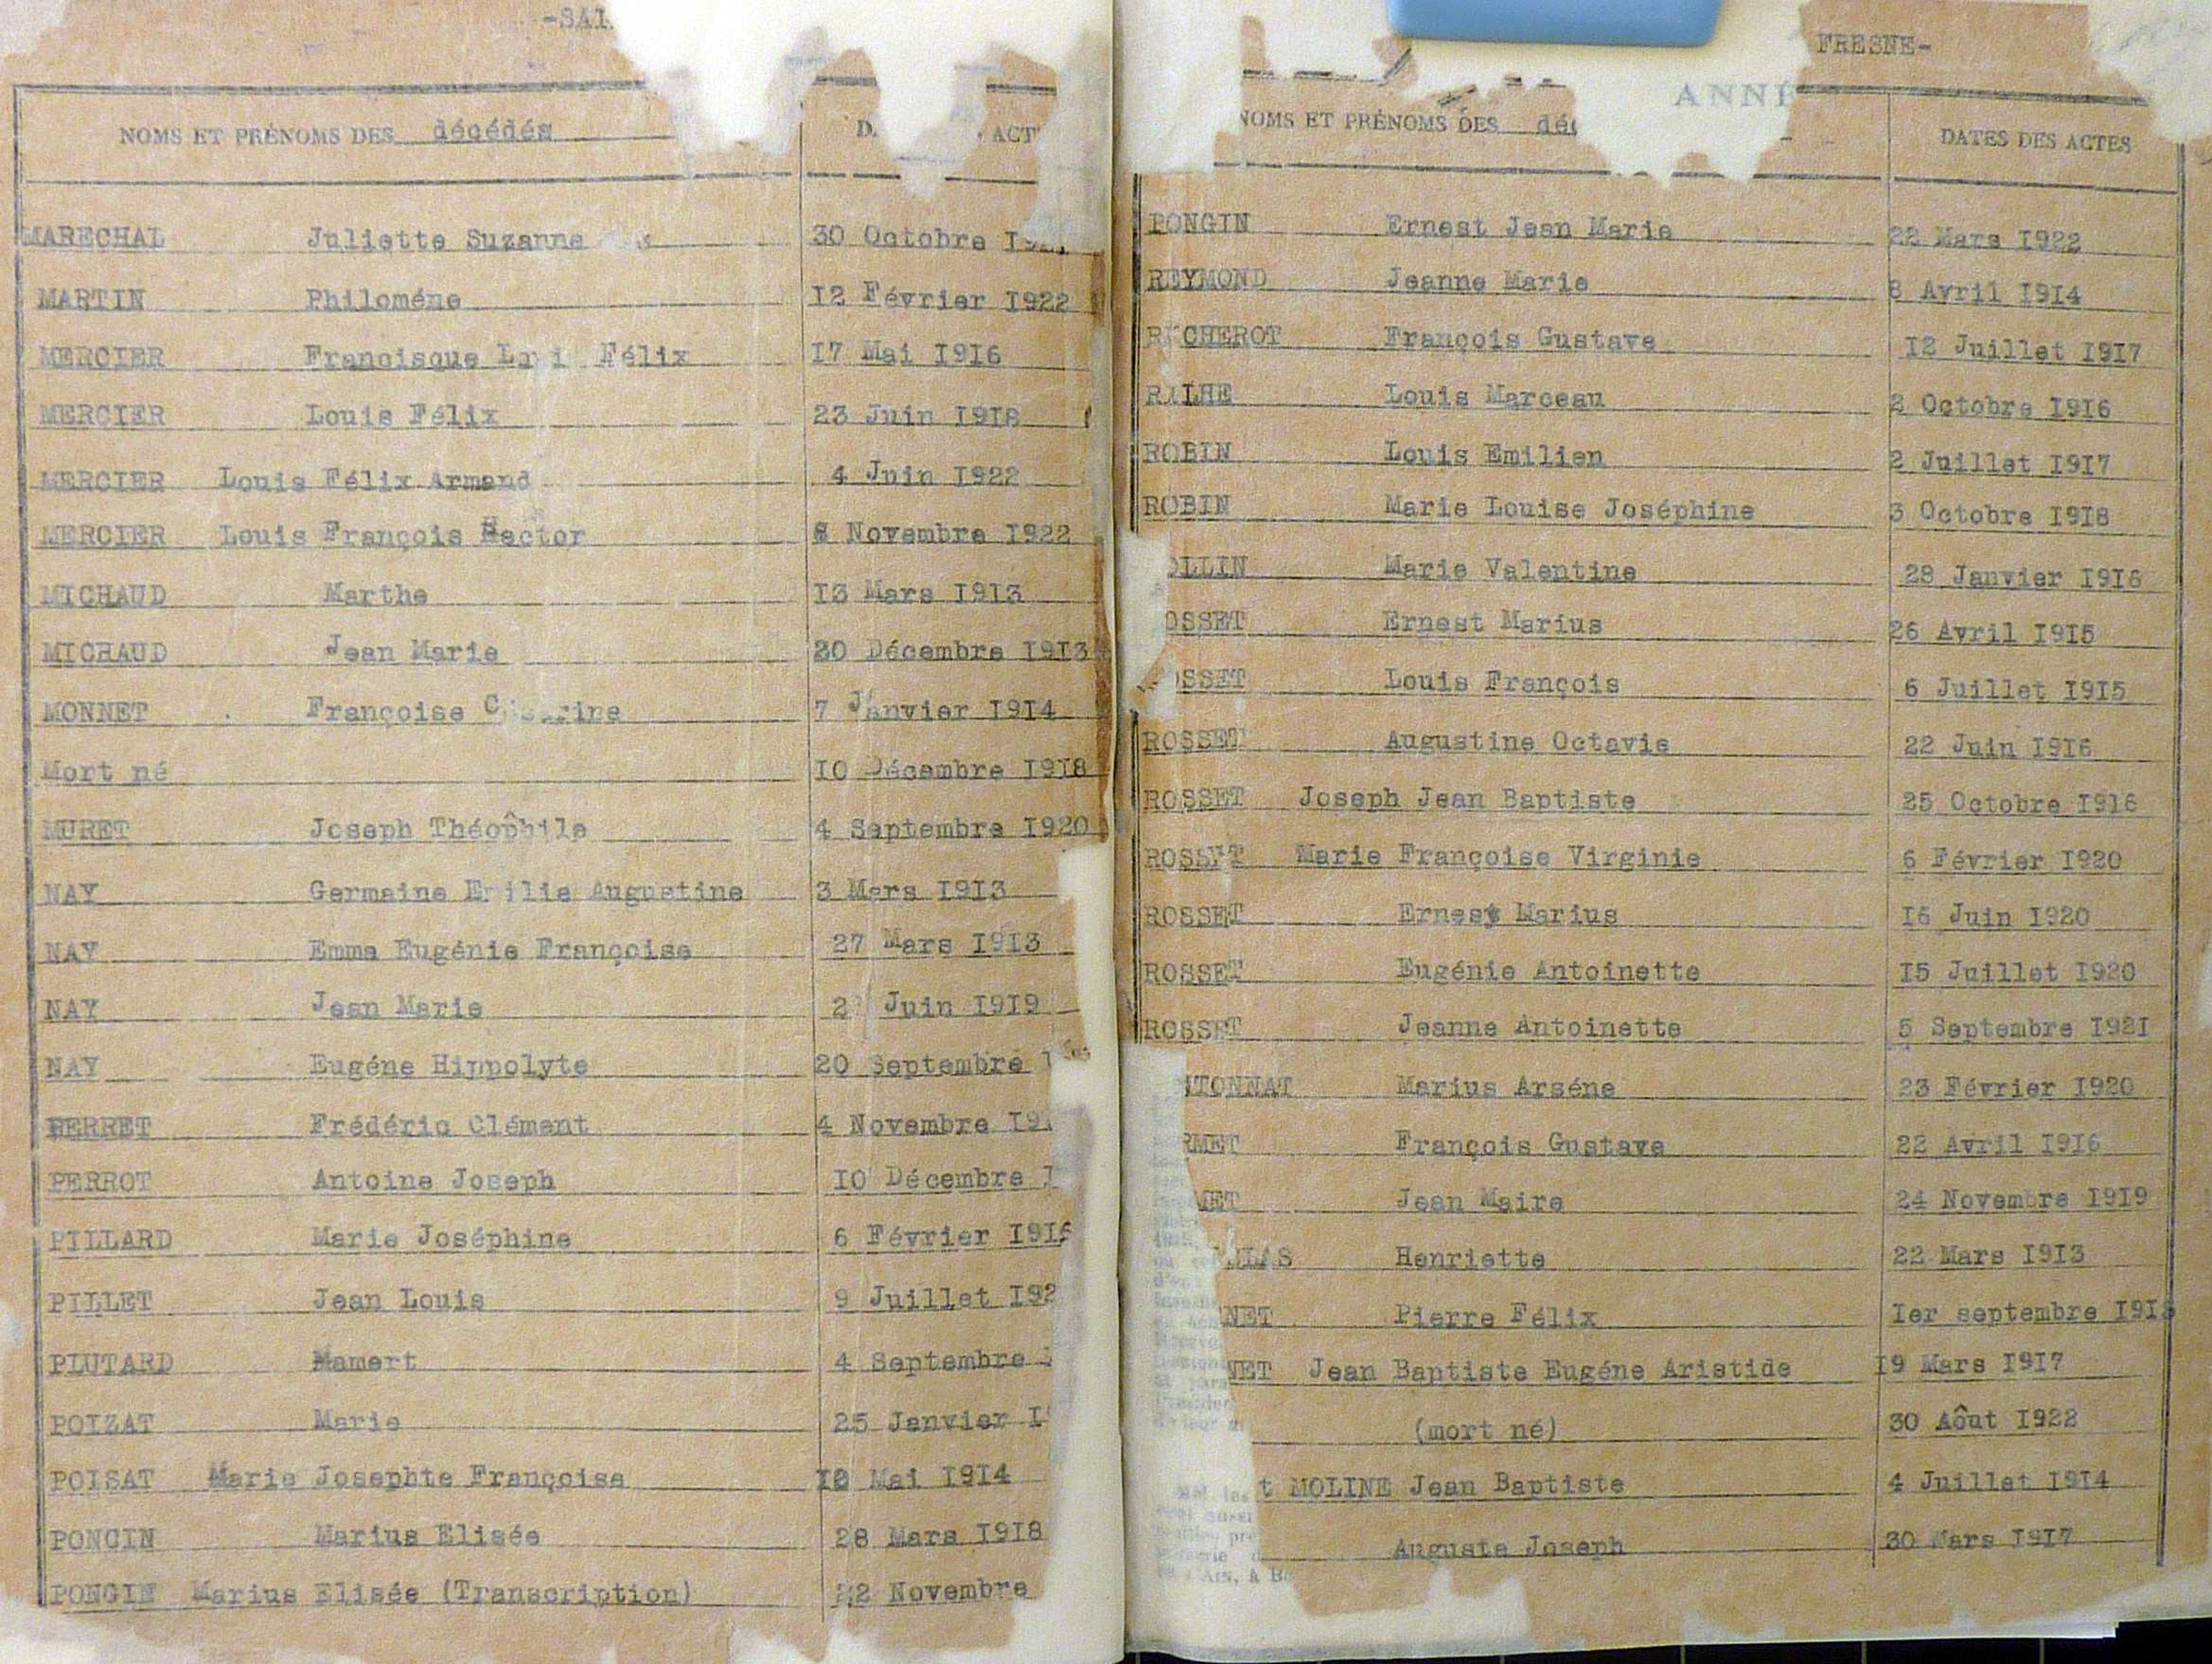 -SAI
NOMS ET PRÉNOMS DES décédés D. ACT
MARECHAL Juliette Suzanne 30 Octobre
MARTIN Philoméne 12 Février 1922
MERCIER Francisque Félix 17 Mai 1916
MERCIER Louis Félix 23 Juin 1918
MERCIER Louis Félix Armand 4 Juin 1922
MERCIER Louis François Hector 8 Novembre 1922
MICHAUD Marthe 13 Mars 1913
MICHAUD Jean Marie 20 Décembre 1913
MONNET Françoise 7 Janvier 1914
Mort né 10 Décembre 1918
MURET Joseph Théophile 4 Septembre 1920
NAY Germaine Emilie Augustine 3 Mars 1913
NAY Emma Eugénie Françoise 27 Mars 1913
NAY Jean Marie Juin 1919
NAY Eugéne Hippolyte 20 Septembre
PERRET Frédéric Clément 4 Novembre 19
PERROT Antoine Joseph 10 Décembre
PILLARD Marie Joséphine 6 Février
PILLET Jean Louis 9 Juillet 192
PLUTARD Mamert 4 Septembre
POIZAT Marie 25 Janvier
POISAT Marie Josephte Françoise Mai 1914
PONCIN Marius Elisée 28 Mars 1918
PONCIN Marius Elisée (Transcription) 22 Novembre
FRESNE-
ANNÉ
NOMS ET PRÉNOMS DES déc DATES DES ACTES
PONCIN Ernest Jean Marie 22 Mars 1922
REYMOND Jeanne Marie 8 Avril 1914
CHEROT François Gustave 12 Juillet 1917
Louis Marceau 2 Octobre 1916
ROBIN Louis Emilien 2 Juillet 1917
ROBIN Marie Louise Joséphine 3 Octobre 1918
OLLIN Marie Valentine 28 Janvier 1916
OSSET Ernest Marius 26 Avril 1915
OSSET Louis François 6 Juillet 1915
ROSSET Augustine Octavie 22 Juin 1916
ROSSET Joseph Jean Baptiste 25 Octobre 1916
ROSSET Marie Françoise Virginie 6 Février 1920
ROSSET Ernest Marius 16 Juin 1920
ROSSET Eugénie Antoinette 15 Juillet 1920
ROSSET Jeanne Antoinette 5 Septembre 1921
TONNAT Marius Arséne 23 Février 1920
RMET François Gustave 22 Avril 1916
MET Jean Maire 24 Novembre 1919
LAS Henriette 22 Mars 1913
NET Pierre Félix 1er septembre 191
NET Jean Baptiste Eugéne Aristide 19 Mars 1917
(mort né) 30 Aôut 1922
t MOLINE Jean Baptiste 4 Juillet 1914
Auguste Joseph 30 Mars 1917